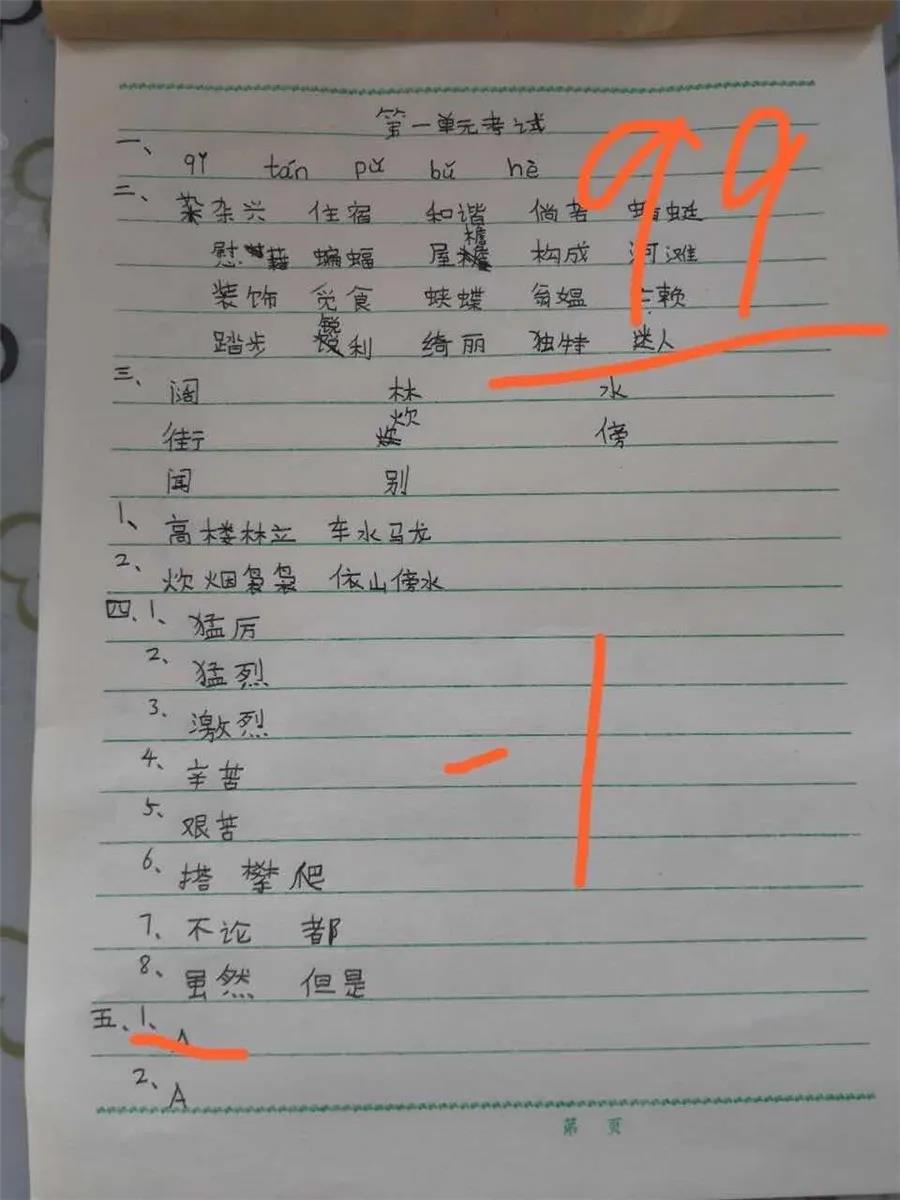 第一单元考试
一、
qǐ tán pǔ bǔ hè
二、 杂兴 住宿 和谐 倘若 蜻蜓
慰藉 蝙蝠 屋檐 构成 河滩
装饰 觅食 蛱蝶 翁媪 赖
踏步 锐利 绮丽 独特 迷人
三、 阔 林 水
街 炊 傍
闻 别
1、 高楼林立 车水马龙
2、 炊烟袅袅 依山傍水
四、1、 猛厉
2、 猛烈
3、 激烈
4、 辛苦
5、 艰苦
6、 搭 攀爬
7、 不论 都
8、 虽然 但是
五、1、 A
2、 A
99
-1
第 页